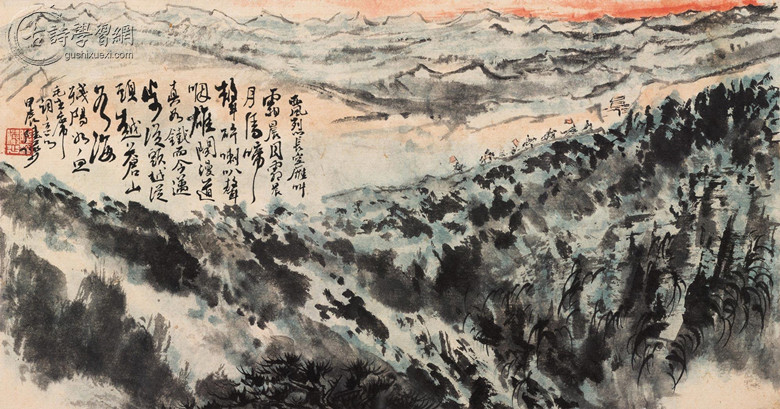 古詩學習網
gushixuexi.com
西風烈長空雁叫
霜晨月霜晨
月馬蹄
聲碎喇叭聲
咽雄関漫道
真如鐵而今邁
步從頭越從
頭越蒼山
如海
殘陽如血
毛主席
詞意
甲辰